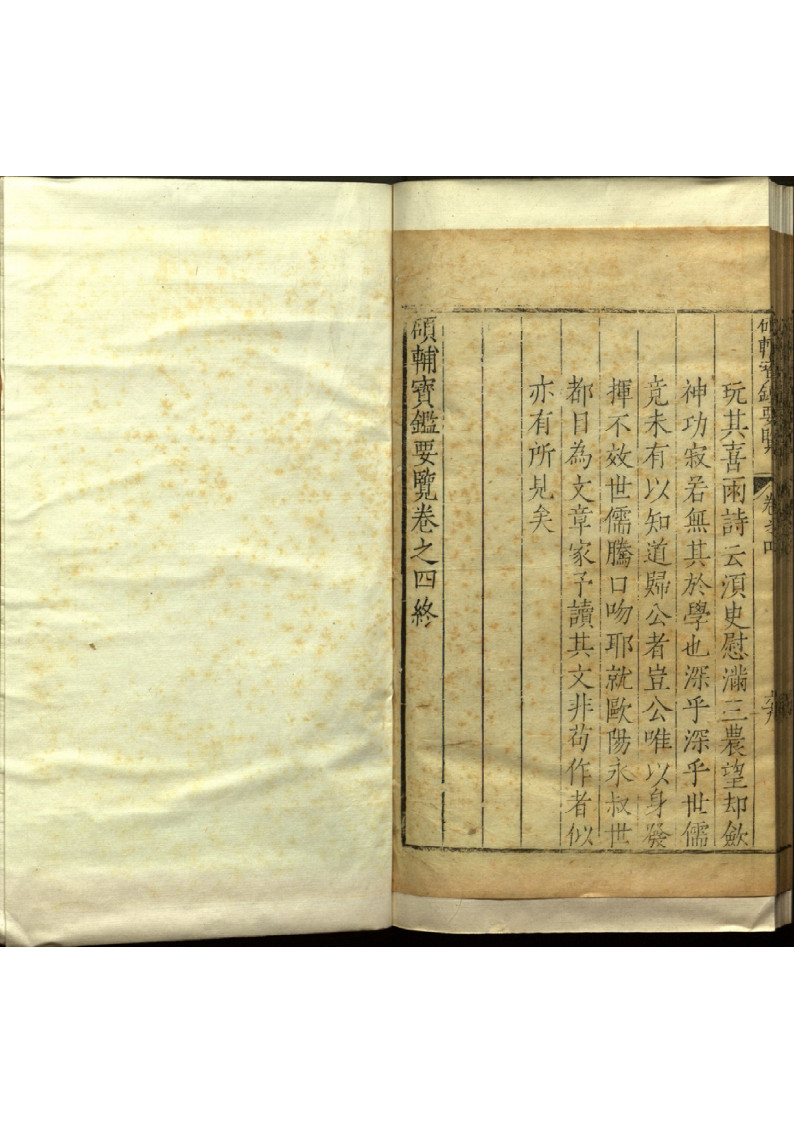 碩輔寶鑑要覽 卷之四
玩其喜雨詩云湏史慰滿三農望却斂
神功寂若無其於學也深乎深乎世儒
竟未有以知道歸公者豈公唯以身發
揮不效世儒騰口吻耶就歐陽永叔世
都目為文章家予讀其文非苟作者似
亦有所見矣
碩輔寶鑑要覽卷之四終